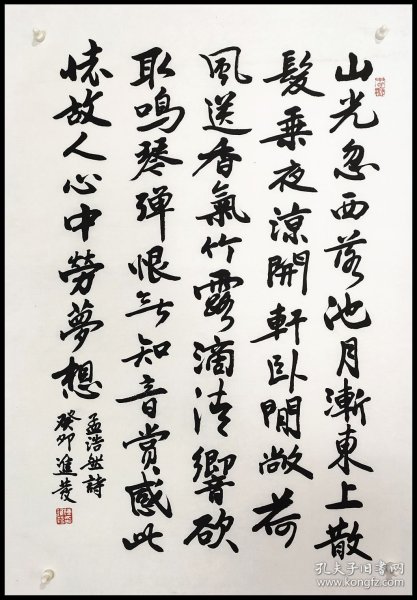 山光忽西落池月漸東上散
髮乘夜涼開軒臥閒敞荷
風送香氣竹露滴清響欲
取鳴琴彈恨無知音賞感此
懷故人心中勞夢想
孟浩然詩
癸卯進發
孔夫子旧书网
www.kongfz.com